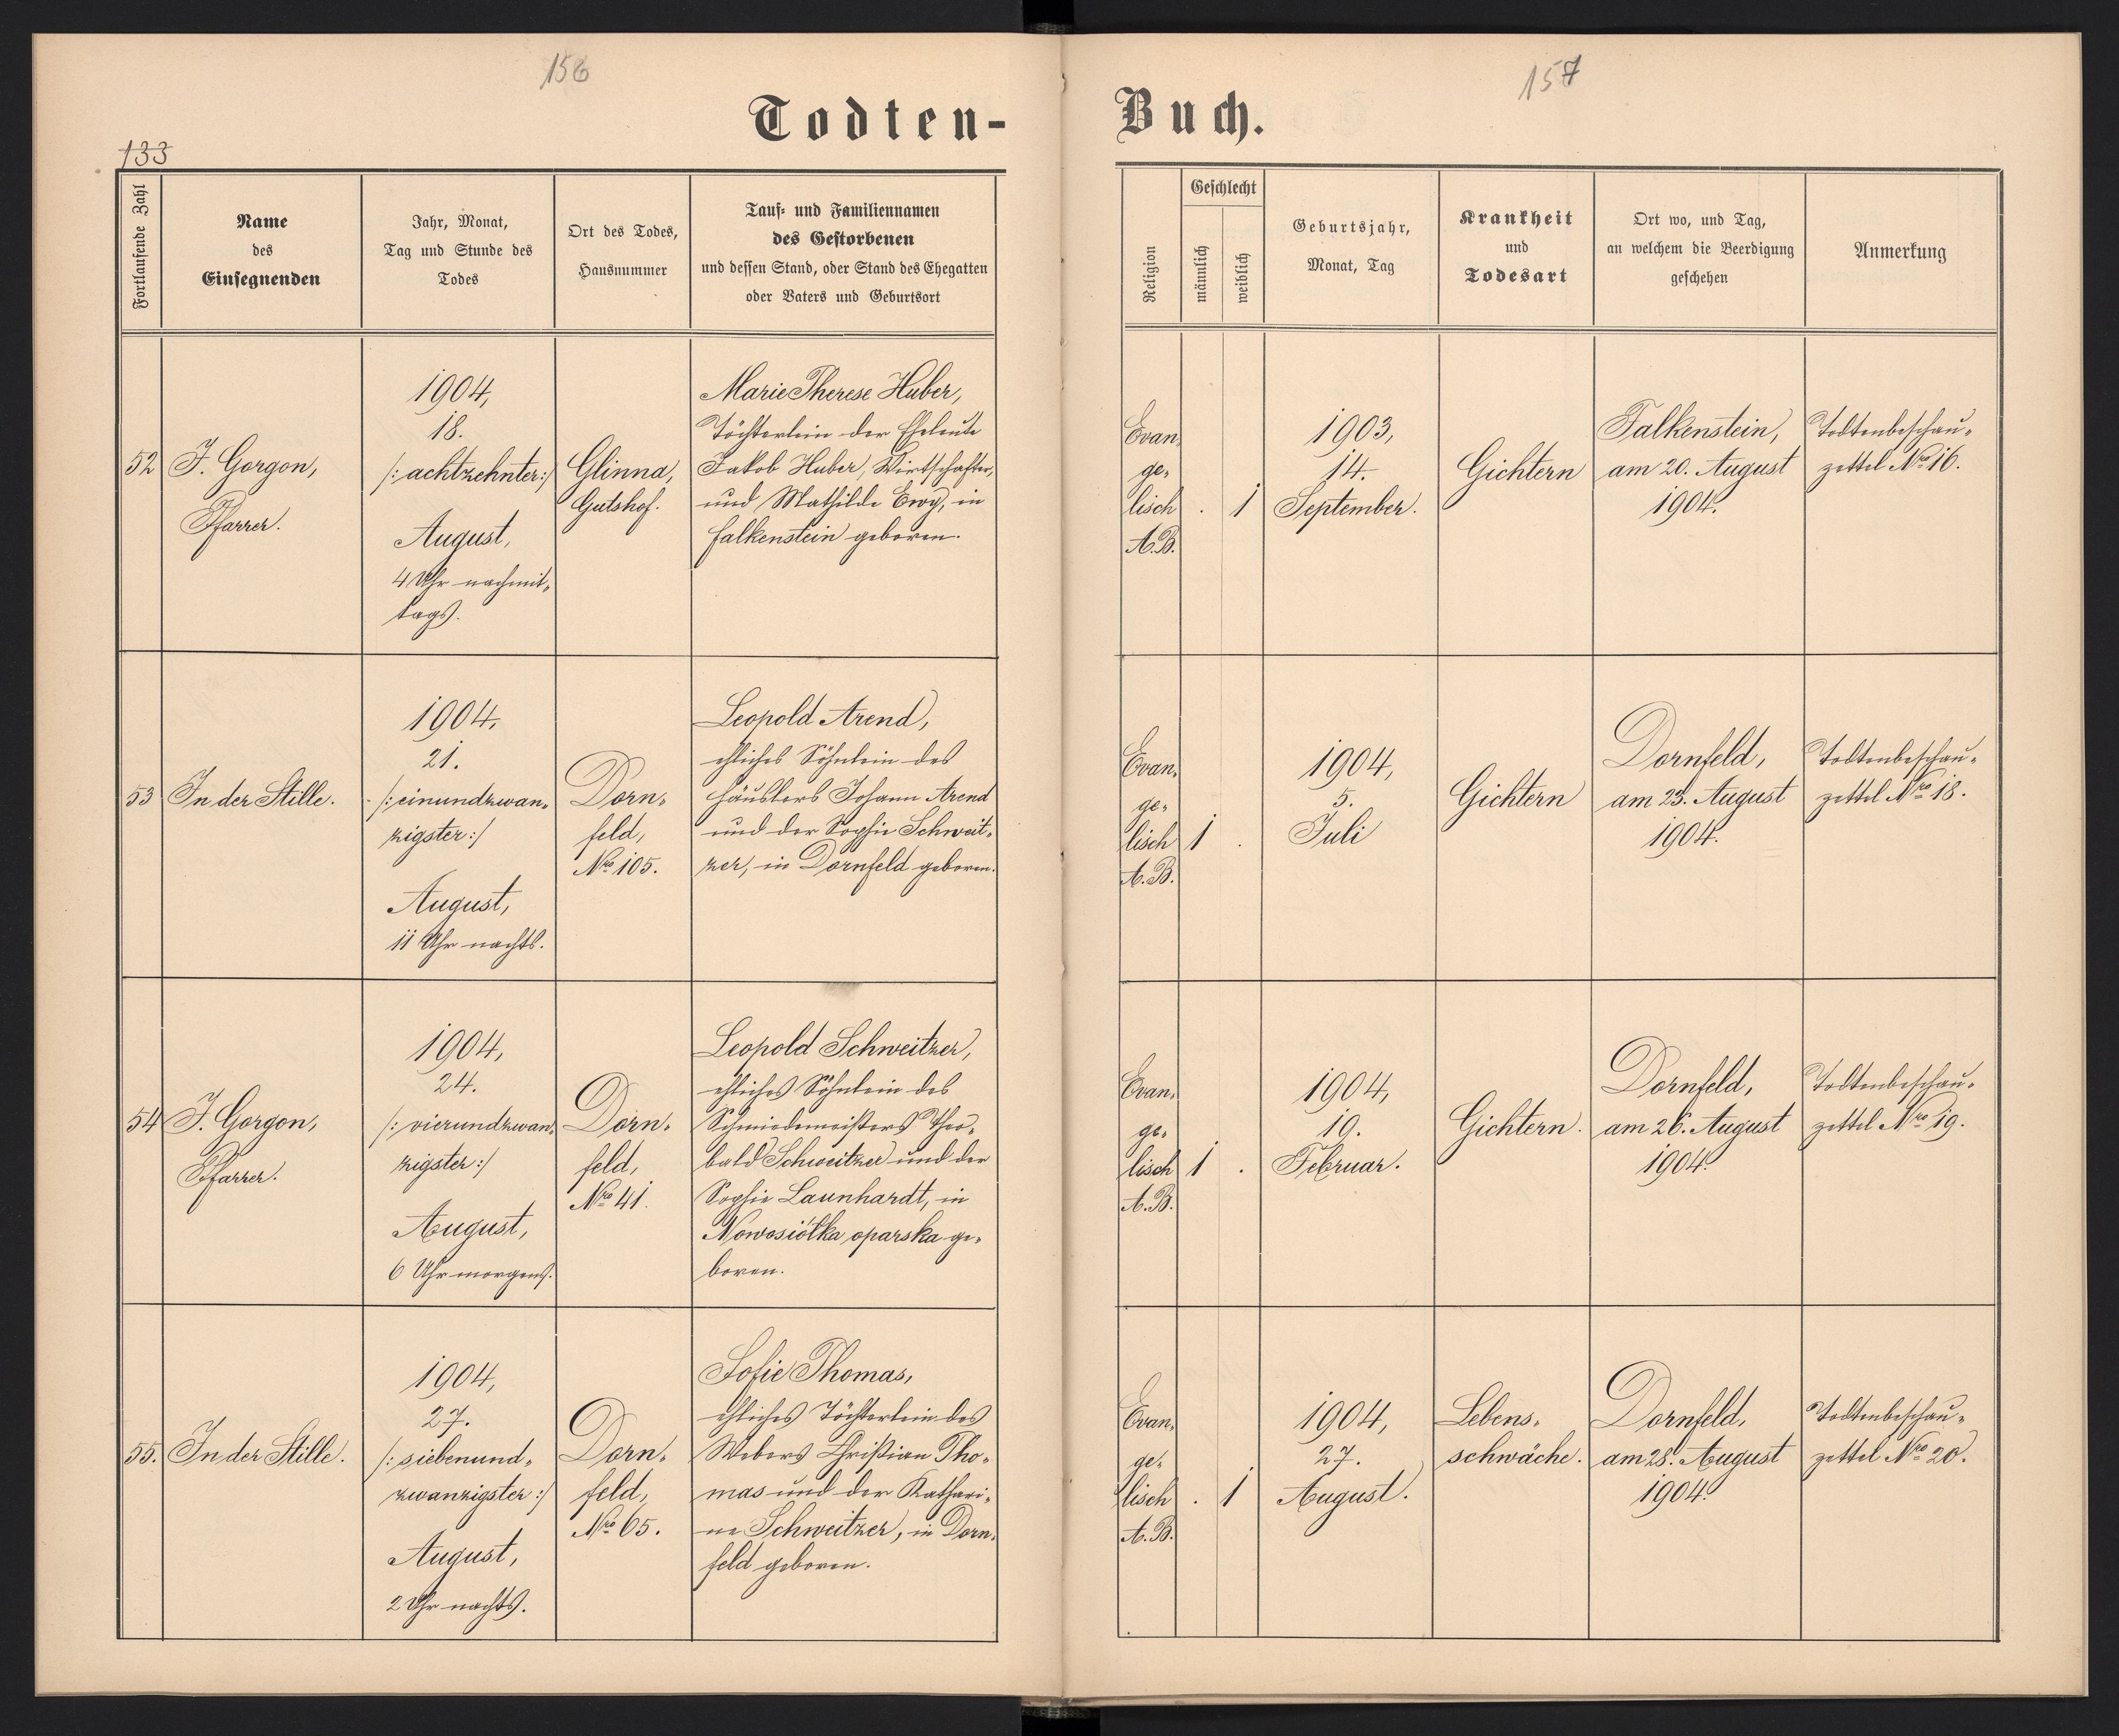 156
157
Todten-
Buch.
133
Fortlaufende Zahl
Name
des
Einsegnenden
Jahr, Monat,
Tag und Stunde des
Todes
Ort des Todes,
Hausnummer
Tauf- und Familiennamen
des Gestorbenen
und dessen Stand, oder Stand des Ehegatten
oder Vaters und Geburtsort
Religion
Geschlecht
männlich
weiblich
Geburtsjahr,
Monat, Tag
Krankheit
und
Todesart
Ort wo, und Tag,
an welchem die Beerdigung
geschehen
Anmerkung
52
J. Gorgon,
Pfarrer.
1904,
18.
/: achtzehnter :/
August,
4 Uhr nachmit-
tags.
Glinna,
Gutshof.
Marie Therese Huber,
Töchterlein der Eheleute
Jakob Huber, Wirtschafter,
und Mathilde Ewy, in
Falkenstein geboren.
Evan-
ge-
lisch
A.B.
. 1
1903,
14.
September.
Gichtern
Falkenstein,
am 20. August
1904.
Todtenbeschau-
zettel Nro 16.
53
In der Stille.
1904,
21.
/: einundzwan-
zigster :/
August,
11 Uhr nachts.
Dorn-
feld,
Nro 105.
Leopold Arend,
ehliches Söhnlein des
Häuslers Johann Arend
und der Sophie Schweit-
zer, in Dornfeld geboren.
Evan-
ge-
lisch
A.B.
1 .
1904,
5.
Juli
Gichtern
Dornfeld,
am 23. August
1904.
Todtenbeschau-
zettel Nro 18.
54
J. Gorgon,
Pfarrer.
1904,
24.
/: vierundzwan-
zigster :/
August,
6 Uhr morgens.
Dorn-
feld,
Nro 41.
Leopold Schweitzer,
ehliches Söhnlein des
Schmiedemeisters Theo-
bald Schweitzer und der
Sophie Launhardt, in
Nowosiółka oparska ge-
boren.
Evan-
ge-
lisch
A.B.
1 .
1904,
19.
Februar.
Gichtern.
Dornfeld,
am 26. August
1904.
Todtenbeschau-
zettel Nro 19.
55.
In der Stille.
1904,
27.
/: siebenund-
zwanzigster :/
August,
2 Uhr nachts.
Dorn-
feld,
Nro 65.
Sofie Thomas,
ehliches Töchterlein des
Webers Christian Tho-
mas und der Kathari-
ne Schweitzer, in Dorn-
feld geboren.
Evan-
ge-
lisch
A.B.
. 1
1904,
27.
August.
Lebens-
schwäche.
Dornfeld,
am 28. August
1904.
Todtenbeschau-
zettel Nro 20.